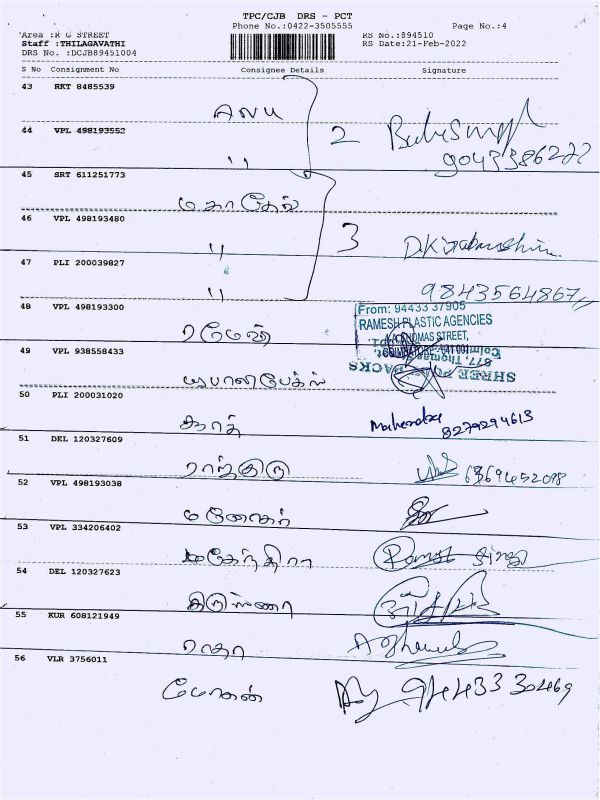 TPC/CJB DRS - PCT
Phone No.:0422-3505555
Page No.:4
Area :R G STREET
Staff :THILAGAVATHI
DRS No. :DCJB89451004
RS No.:894510
RS Date:21-Feb-2022
S No Consignment No Consignee Details Signature
43 RKT 8485539
ANU
44 VPL 498193552
"
2
9043386222
45 SRT 611251773
46 VPL 498193480
"
3
47 PLI 200039827
"
9843564867
48 VPL 498193300
ரமேஷ்
From: 94433 37905
RAMESH PLASTIC AGENCIES
THOMAS STREET,
COIMBATORE - 641 001
877, Thomas
SHREE PACKS
49 VPL 938558433
50 PLI 200031020
Mahendra
8279294613
51 DEL 120327609
52 VPL 498193038
மனோகர்
53 VPL 334206402
மகேந்திரா
54 DEL 120327623
கிருஷ்ணா
55 KUR 608121949
ராதா
56 VLR 3756011
மோகன்
94433 30469